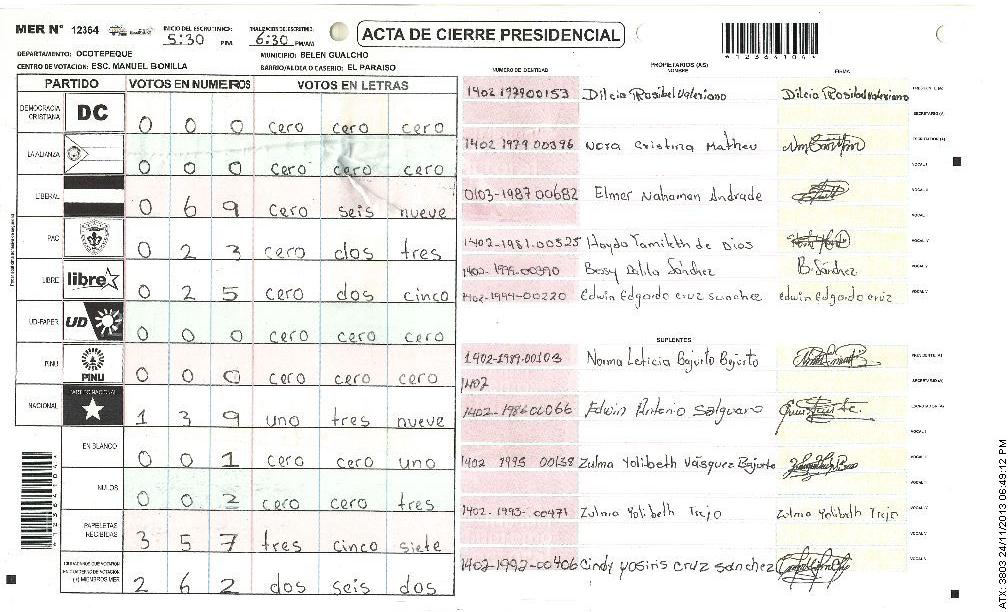 MER N° 12364
INICIO DEL ESCRUTINIO: 5:30 PM.
6:30 PM/AM
ACTA DE CIERRE PRESIDENCIAL
DEPARTAMENTO: OCOTEPEQUE
MUNICIPIO: BELEN GUALCHO
CENTRO DE VOTACION: ESC. MANUEL BONILLA
BARRIO/ALDEA O CASERIO: EL PARAISO
PARTIDO VOTOS EN NUMEROS VOTOS EN LETRAS
DEMOCRACIA CRISTIANA DC 0 0 0 cero cero cero
LA ALIANZA 0 0 0 cero cero cero
LIBERAL 0 6 9 cero seis nueve
PAC 0 2 3 cero dos tres
LIBRE libre 0 2 5 cero dos cinco
UD-FAPER UD 0 0 0 cero cero cero
PINU PINU 0 0 0 cero cero cero
NACIONAL 1 3 9 uno tres nueve
EN BLANCO 0 0 1 cero cero uno
NULOS 0 0 2 cero cero tres
PAPELETAS RECIBIDAS 3 5 7 tres cinco siete
(+) MIEMBROS MER 2 6 2 dos seis dos
NUMERO DE IDENTIDAD PROPIETARIOS (AS) NOMBRE FIRMA
1402 197900153 Dilcia Rosibel Valeriano Dilcia Rosibel Valeriano
1402 1979 00396 Nora Cristina Matheu
0103-1987 00682 Elmer Nahaman Andrade
1402-1981-00525 Haydo Yamileth de Dios
Bessy Dalila Sánchez B. Sánchez
1402-1994-00220 Edwin Edgardo cruz sanchez edwin Edgardo cruz
SUPLENTES
1402-1989-00103 Norma Leticia Bajurto Bajurto
1402
1402-1986 00066 Edwin Antonio Salguero
1402 1995 00138 Zulma Yolibeth Vásquez Bajurto
1402-1993-00471 Zulma Yolibeth Trejo Zulma Yolibeth Trejo
1402-1992-00406 Cindy yosiris cruz sanchez
ATX: 3903 24/11/2013 06:49:12 PM